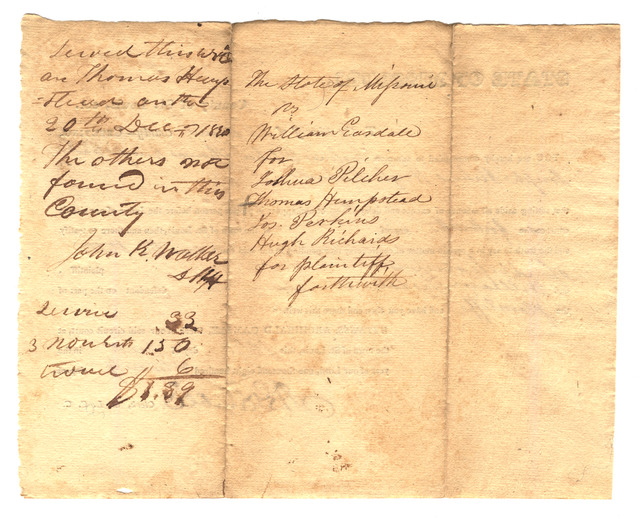 Served this writ
on Thomas Hemp
=stead on the
20th Dec. 1820
The others not
found in this
County
John K. Walker
Shff
Service 33
3 nonests 150
6
$1.89
The State of Missouri
vs
William Easdale
for
Joshua Pilcher
Thomas Hempstead
Jos. Perkins
Hugh Richards
for plaintiff,
forthwith